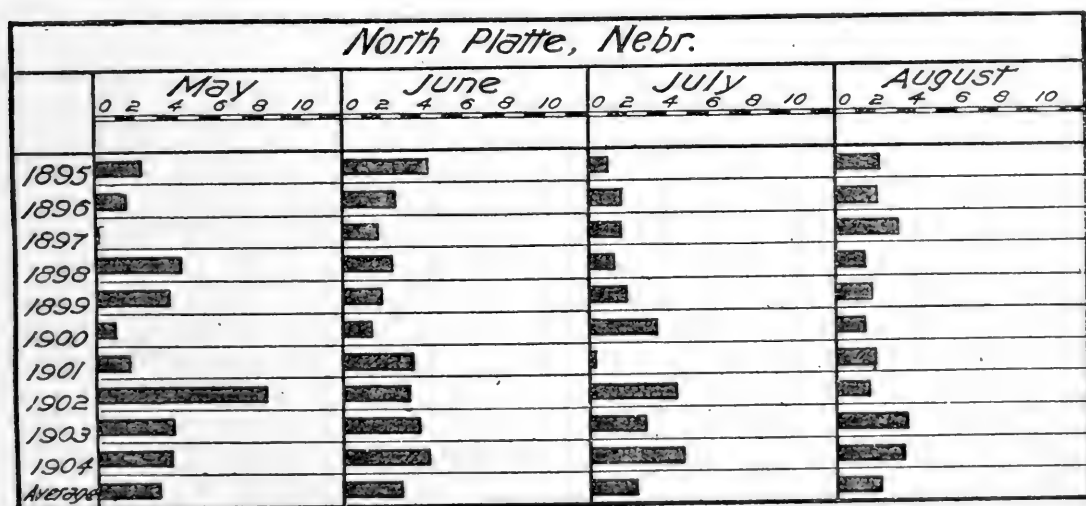 North Platte, Nebr.
May June July August
0 2 4 6 8 10 0 2 4 6 8 10 0 2 4 6 8 10 0 2 4 6 8 10
1895
1896
1897
1898
1899
1900
1901
1902
1903
1904
Average